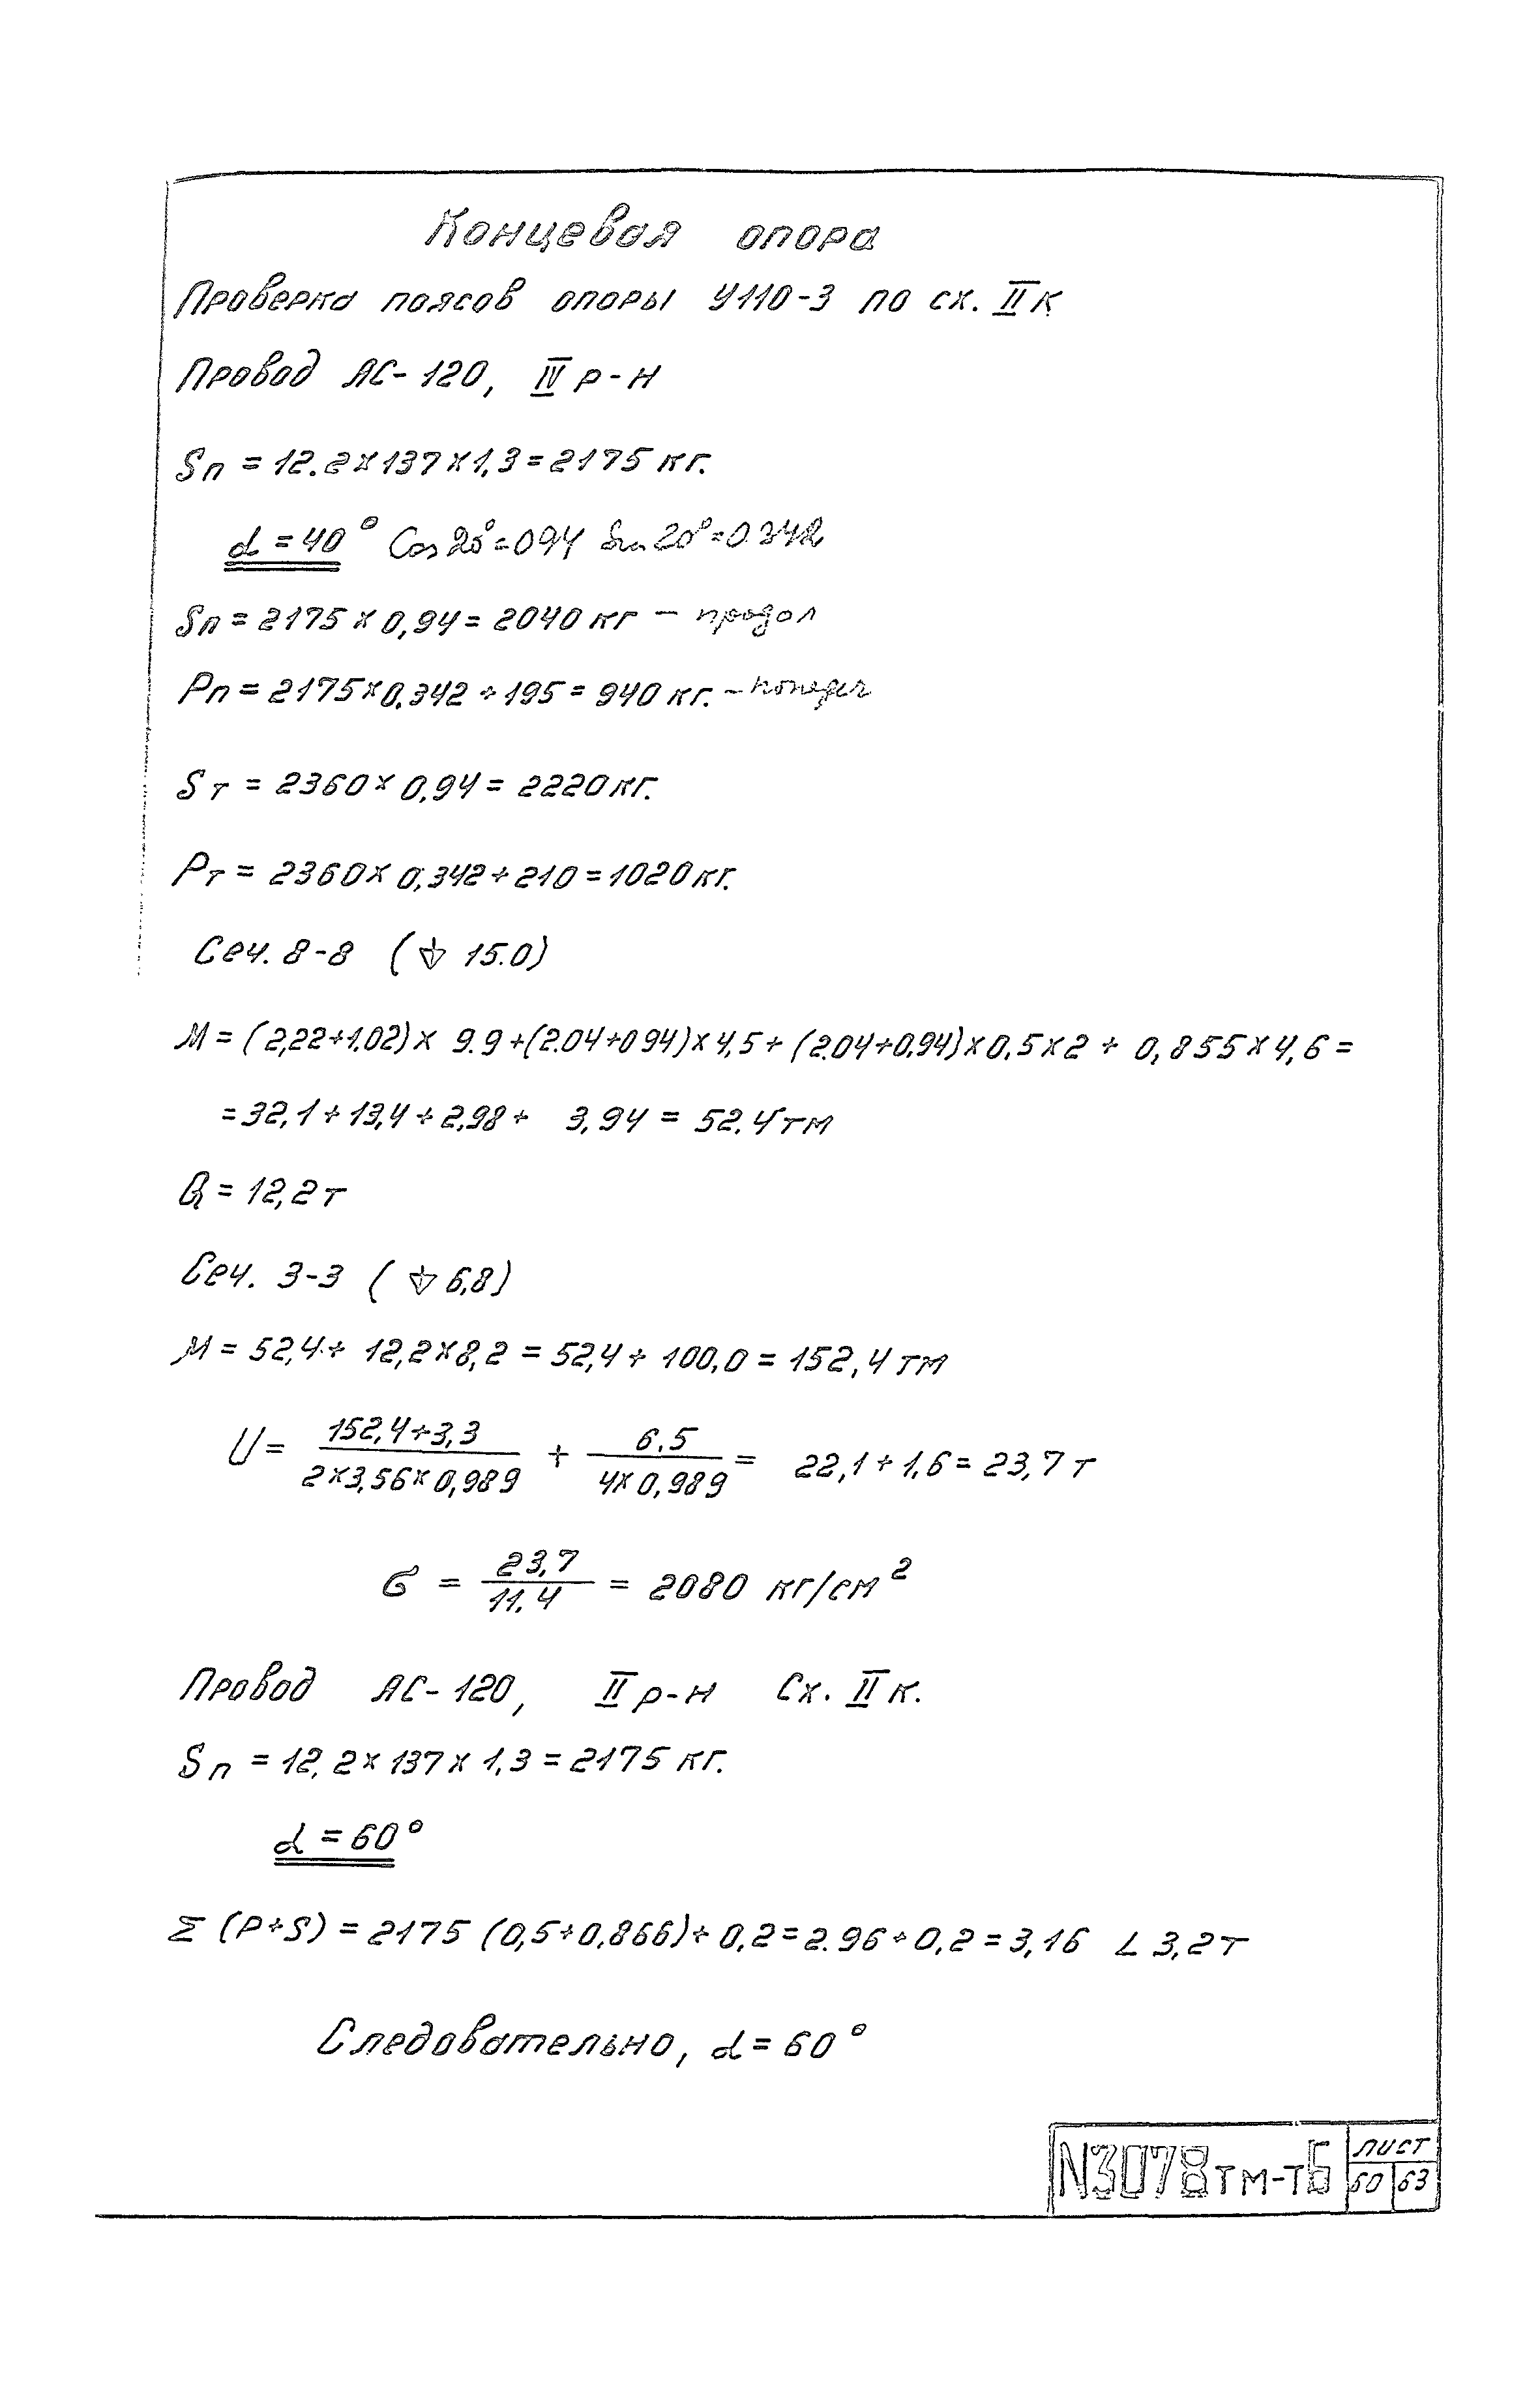 Концевая опора
Проверка поясов опоры У110-3 по сх. IIк
Провод АС-120, IV р-н
Sп = 12.2×137×1,3=2175 кг.
α=40° Cos20°=094 Sin20°=0.342
Sп=2175×0,94=2040 кг – продол
Pп=2175×0,342+195=940 кг. –
Sт=2360×0,94=2220 кг.
Pт=2360×0,342+210=1020 кг.
Сеч. 8-8 (15.0)
M=(2,22+1.02)× 9.9+(2.04+094)×4,5+(2.04+0,94)×0,5×2+ 0,855×4,6=
=32,1+13,4+2,98+ 3,94=52.4тм
Q=12,2т
Сеч. 3-3 (6,8)
M=52,4+ 12,2×8,2=52,4+ 100,0=152,4тм
U= 152,4+3,3 / 2×3,56×0,989 + 6,5 / 4×0,989 = 22,1+1,6=23,7т
σ = 23,7 / 11.4 = 2080 кг/см²
Провод АС-120, II р-н Сх. IIк.
Sп=12,2×137×1,3=2175 кг.
α=60°
Σ(P+S)=2175 (0,5+0,866)+0,2=2.96+0,2=3,16 ∠ 3,2т
Следовательно, α=60°
N3078тм-т6
лист
60 63